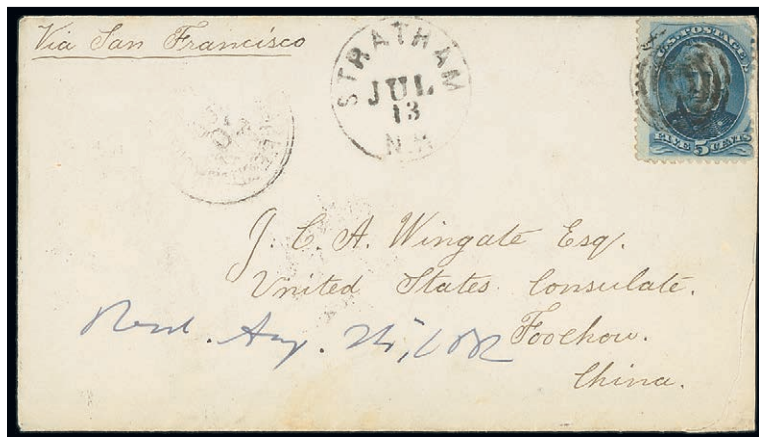 Via San Francisco
STRATHAM
JUL
13
N.H.
U.S. POSTAGE
FIVE 5 CENTS
J. C. A. Wingate Esq.
United States Consulate.
Foochow.
China.
Recd. Aug.